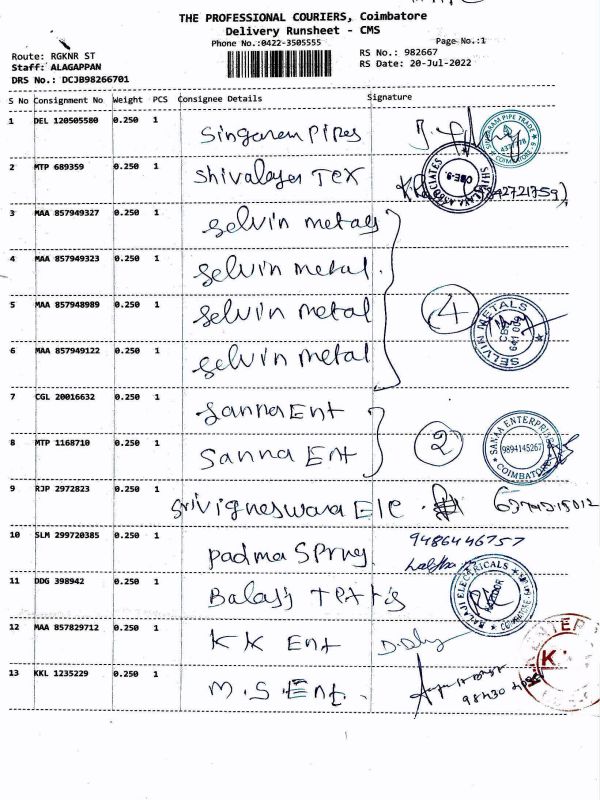 THE PROFESSIONAL COURIERS, Coimbatore
Delivery Runsheet - CMS
Phone No.:0422-3505555 Page No.:1
Route: RGKNR ST RS No.: 982667
Staff: ALAGAPPAN RS Date: 20-Jul-2022
DRS No.: DCJB98266701
S No Consignment No Weight PCS Consignee Details Signature
1 DEL 120505580 0.250 1 Singaram Pipes
2 MTP 689359 0.250 1 Shivalaya Tex
3 MAA 857949327 0.250 1 Selvin metals
4 MAA 857949323 0.250 1 Selvin metal.
5 MAA 857948989 0.250 1 Selvin metal 4 SELVIN METALS
6 MAA 857949122 0.250 1 Selvin metal
7 CGL 20016632 0.250 1 Sanna Ent
8 MTP 1168710 0.250 1 Sanna Ent 2 SANAA ENTERPRISES 9894145267 COIMBATORE
9 RJP 2972823 0.250 1 Srivigneswara Ele.
10 SLM 299720385 0.250 1 Padma Spring. 9486446757
11 DDG 398942 0.250 1 Balaji BALAJI ELECTRICALS
12 MAA 857829712 0.250 1 KK Ent
13 KKL 1235229 0.250 1 M.S. Ent.